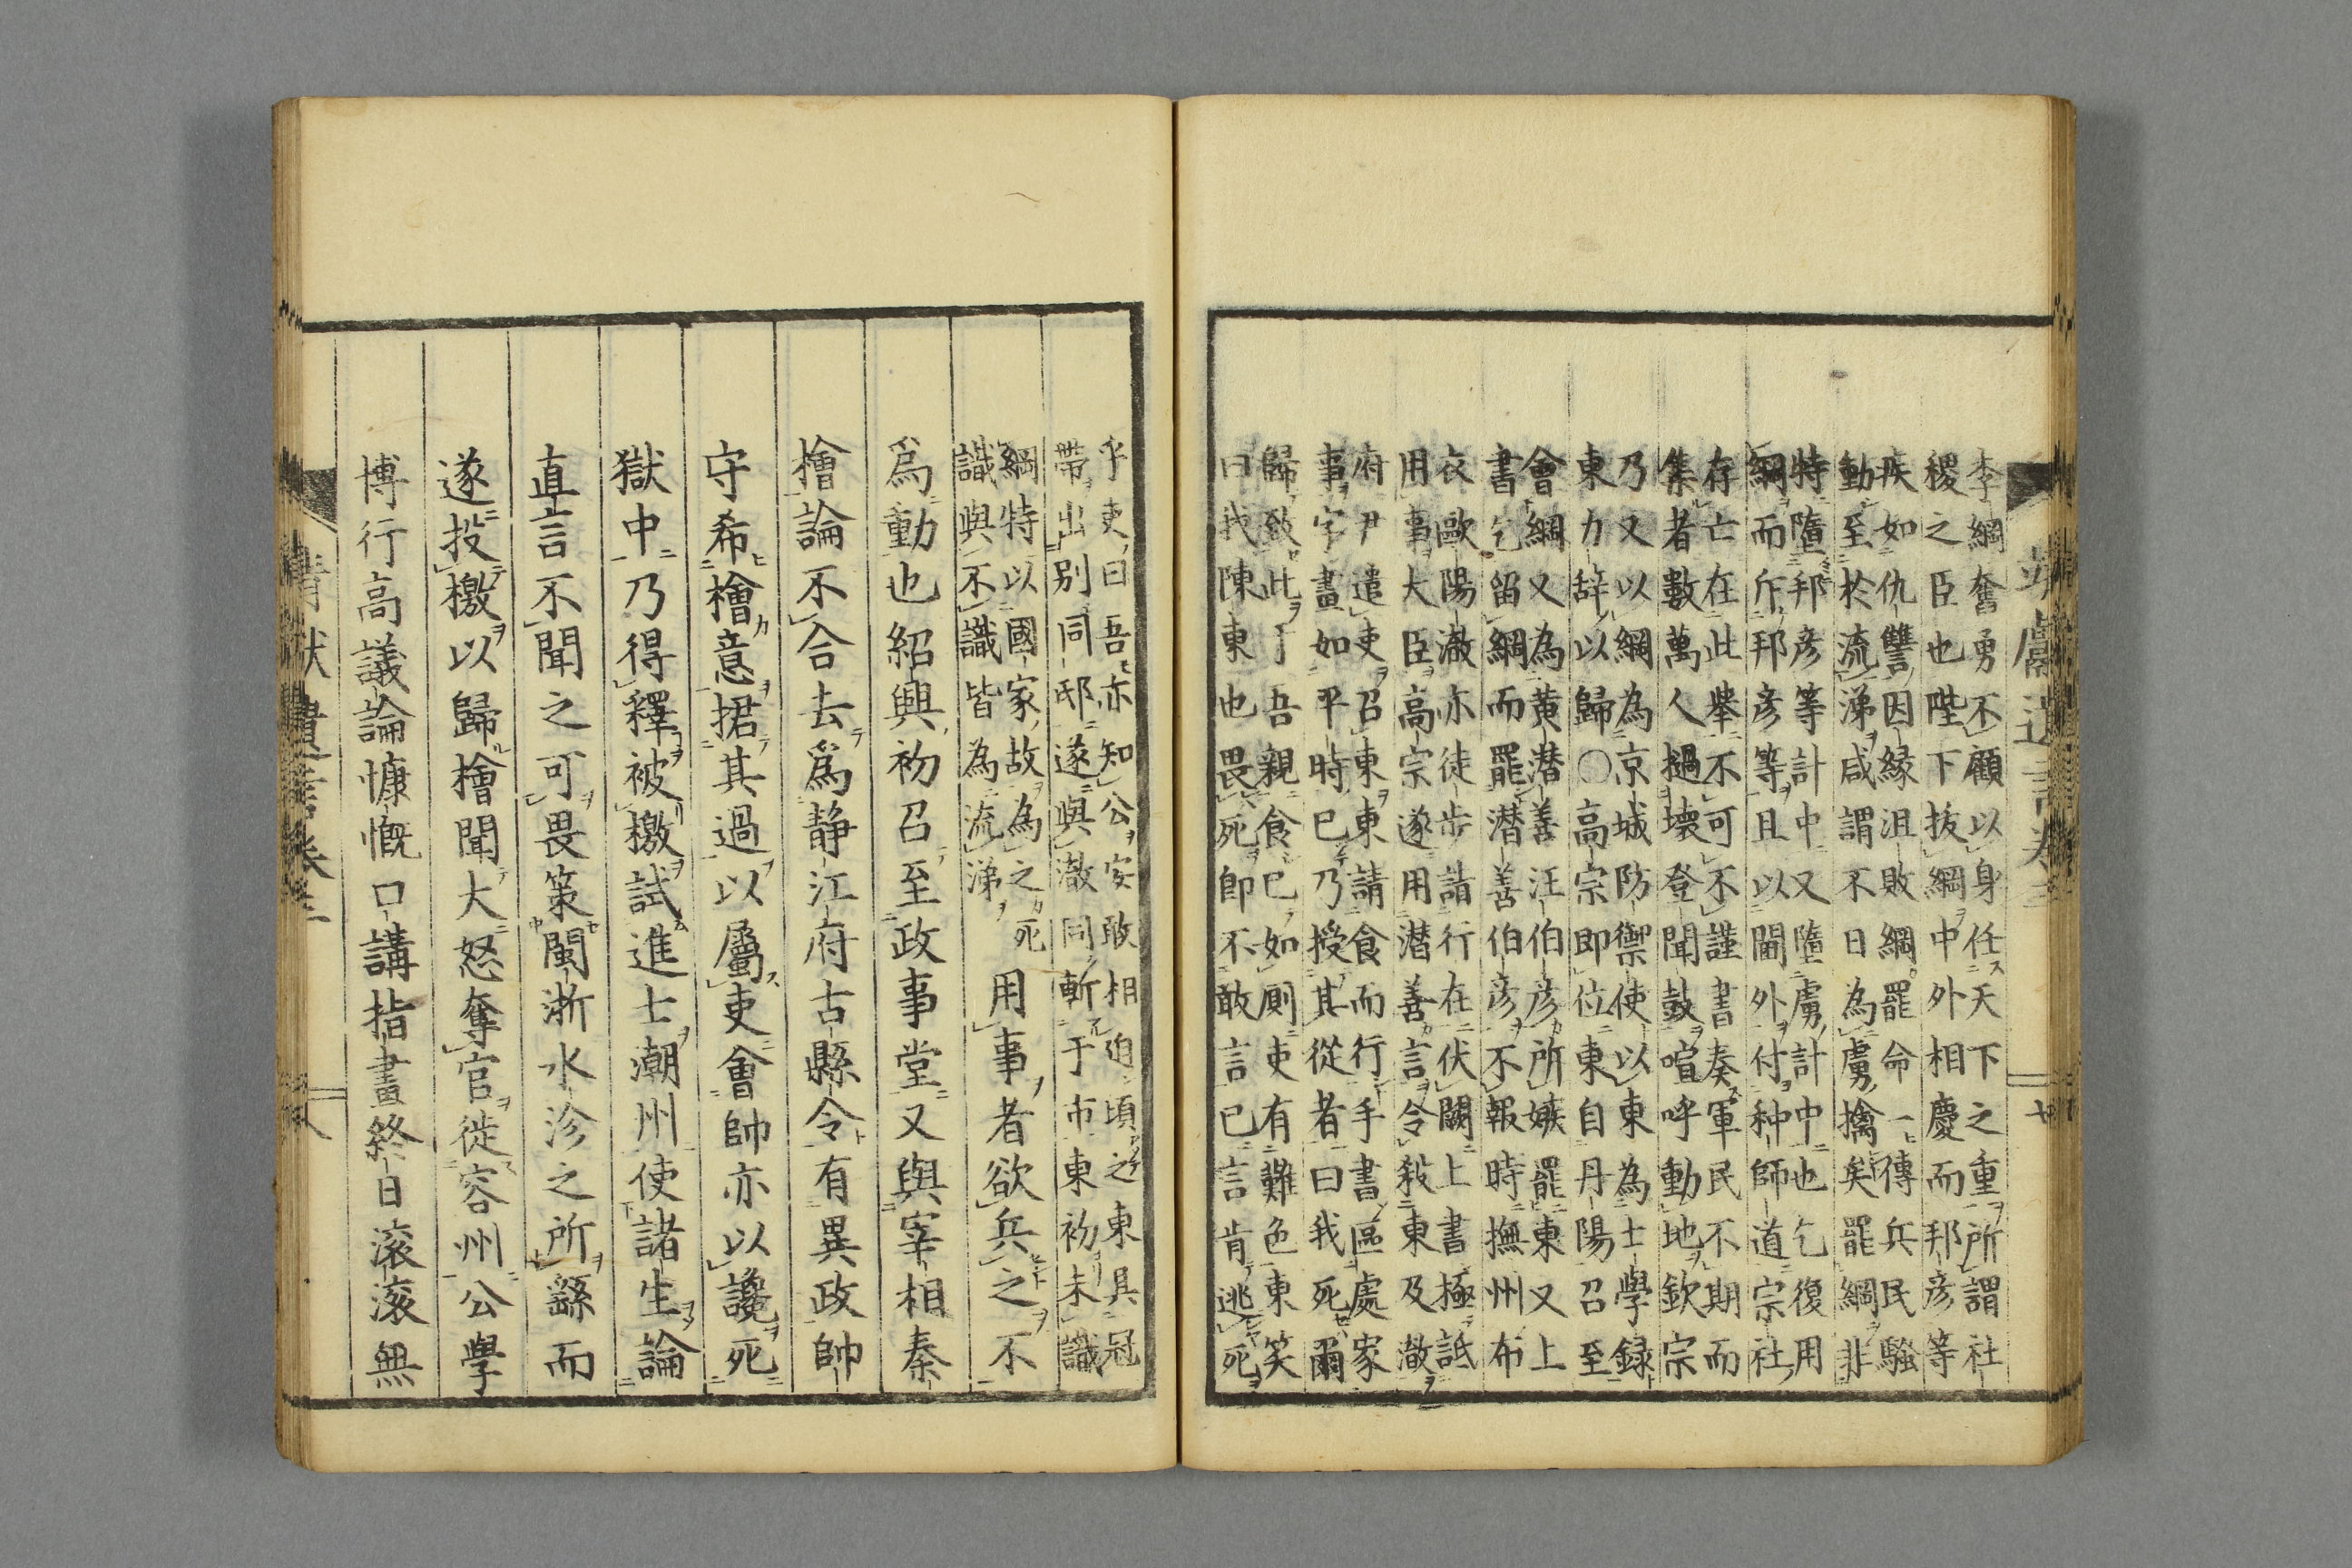 李綱奮勇不顧以身任天下之重所謂社
稷之臣也陛下抜綱中外相慶而邦彦等
疾如仇讐因緣沮敗綱罷命一傳兵民騷
動至於流涕咸謂不日為虜擒矣罷綱非
特墮邦彦等計中又墮虜計中也乞復用
綱而斥邦彦等且以閫外付种師道宗社
存亡在此舉不可不謹書奏軍民不期而
集者數萬人撾壞登聞鼓喧呼動地欽宗
乃又以綱為京城防禦使以東為士學録
東力辞以歸〇高宗即位東自丹陽召至
會綱又為黄潛善汪伯彦所嫉罷東又上
書乞留綱而罷潛善伯彦不報時撫州布
衣歐陽澈亦徒步詣行在伏闕上書極詆
用事大臣高宗遂用潛善言令殺東及澈
府尹遣吏召東東請食而行手書區處家
事字畫如平時已乃授其從者曰我死爾
歸致此于吾親食已如厠吏有難色東笑
曰我陳東也畏死即不敢言已言肯逃死
乎吏曰吾亦知公安敢相迫頃之東具冠
帶出別同邸遂與澈同斬于市東初未識
綱特以國家故為之死
識與不識皆為流涕
用事者欲兵之不
爲動也紹興初召至政事堂又與宰相秦
檜論不合去爲静江府古縣令有異政帥
守希檜意捃其過以屬吏會帥亦以讒死
獄中乃得釋被檄試進士潮州使諸生論
直言不聞之可畏策閩浙水沴之所繇而
遂投檄以歸檜聞大怒奪官徙容州公學
博行高議論慷慨口講指畫終日滚滚無